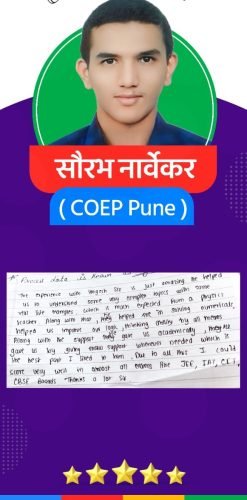 सौरभ नार्वेकर
( COEP Pune )
The experience with Yogesh Sir is just amazing. He helped
us to understand some very complex topics with some
real life examples which is much expected from a physics
teacher. Along with that they helped me in solving numericals,
helped us improve our logic thinking ability by all means.
Along with the support they gave us academically, they also
gave us by giving moral support whenever needed which is
the best part I liked in him. Due to all this I could
score very well in almost all exams like JEE, IAT, CET,
CBSE Boards. Thanks a lot Sir